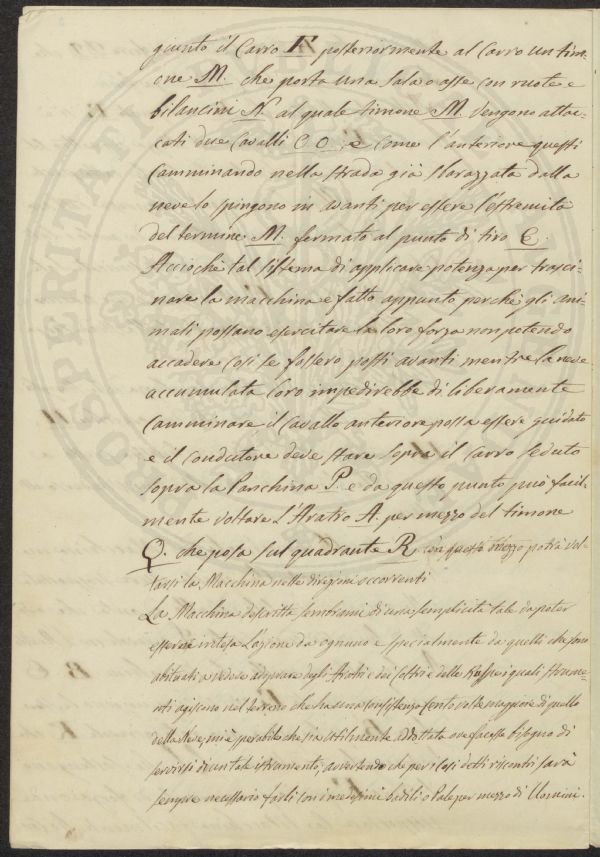 giunto il Carro F. posteriormente al Carro un tim-
one M. che porta una sala o asse con ruote e
bilancini N. al quale timone M. vengono attac-
cati due Cavalli O O; e come l'anteriore questi
Camminando nella strada già sbarazzata dalla
neve lo spingono in avanti per essere l'estremità
del termine M. fermato al punto di tiro E.
Acciochè tal sistema di applicare potenza per trasci-
nare la macchina e fatto appunto perchè gli ani-
mali possano esercitare la loro forza non potendo
accadere così se fossero posti avanti mentre la neve
accumulata loro impedirebbe di liberamente
Camminare il Cavallo anteriore possa essere guidato
e il conduttore deve stare sopra il Carro seduto
sopra la Panchina P. e da questo punto può facil-
mente voltare l'Aratro A. per mezzo del timone
Q. che posa sul quadrante R con questo mezzo potrà vol-
tarsi la Macchina nelle direzioni occorrenti
La Macchina descritta sembrami di una semplicità tale da poter
essere intesa l'azione da ognuno e specialmente da quelli che sono
abituati a vedere adoprare degli Aratri e dei Coltri e delle i quali strume-
nti agiscono nel terreno che ha una consistenza cento volte maggiore di quello
della Neve, mi è sperabile che sia utilmente addittata ove facesse bisogno di
servirsi di un tale istrumento; avvertendo che per i così detti riscontri sarà
sempre necessario farli con i medesimi badili o Pale per mezzo di Uomini.